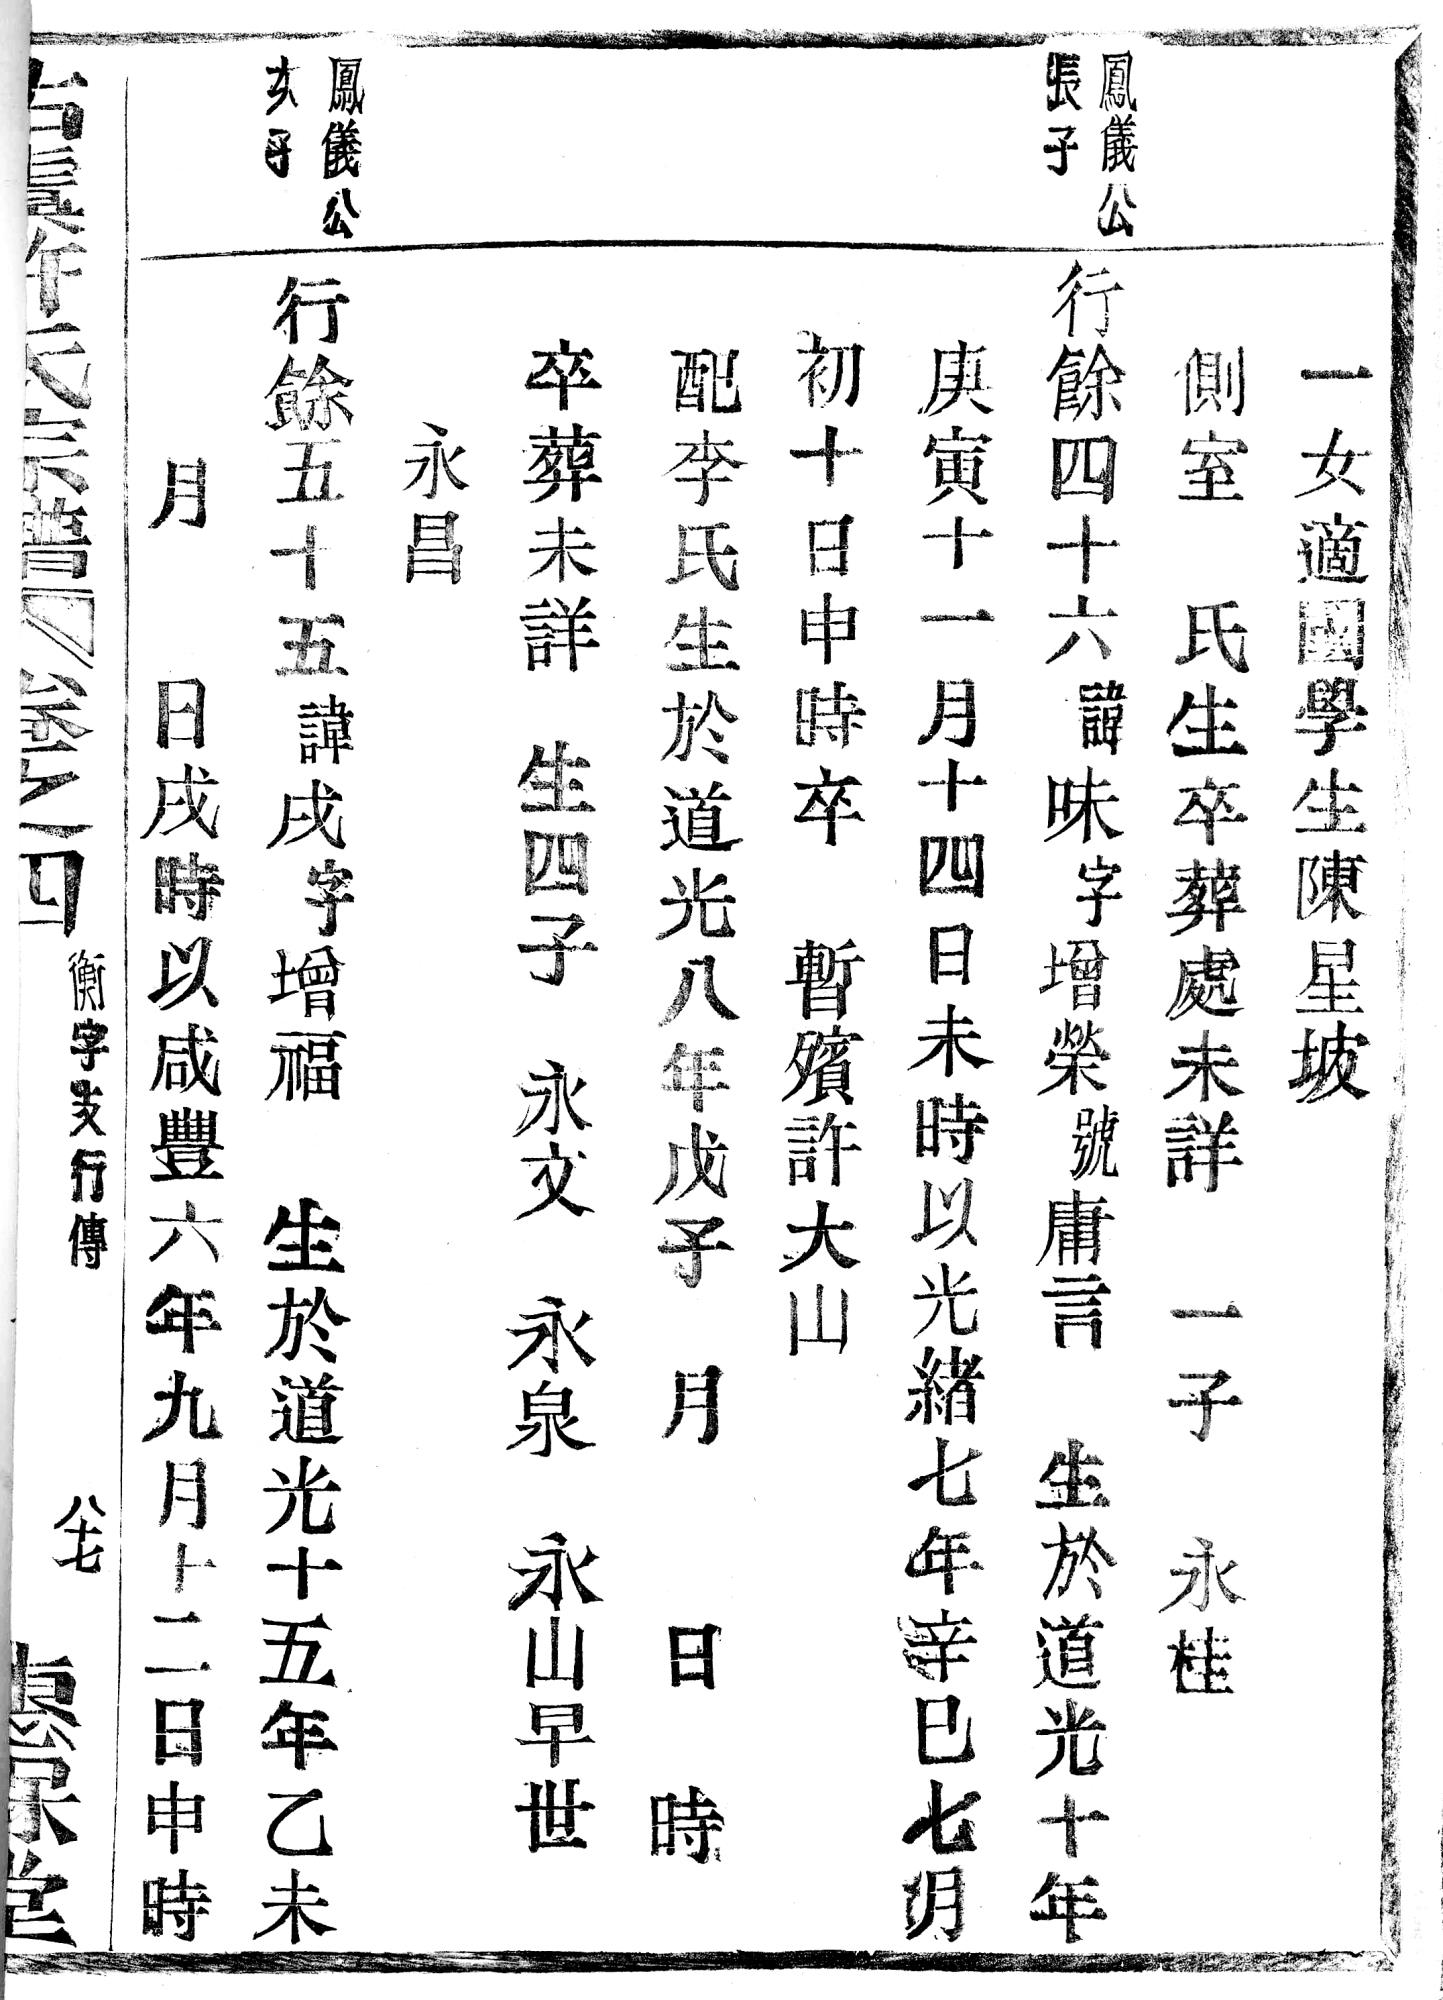 一女適國學生陳星坡
側室　氏生卒葬處未詳　一子　永桂
鳳儀公
長子
行餘四十六諱味字增榮號庸言　生於道光十年
庚寅十一月十四日未時以光緒七年辛巳七月
初十日申時卒　暫殯許大山
配李氏生於道光八年戊子　月　日　時
卒葬未詳　生四子　永文　永泉　永山早世
永昌
鳳儀公
次子
行餘五十五諱戌字增福　生於道光十五年乙未
月　日戌時以咸豐六年九月十二日申時
古虞許氏宗譜　卷之四
衡字支行傳
八十七
惠保堂